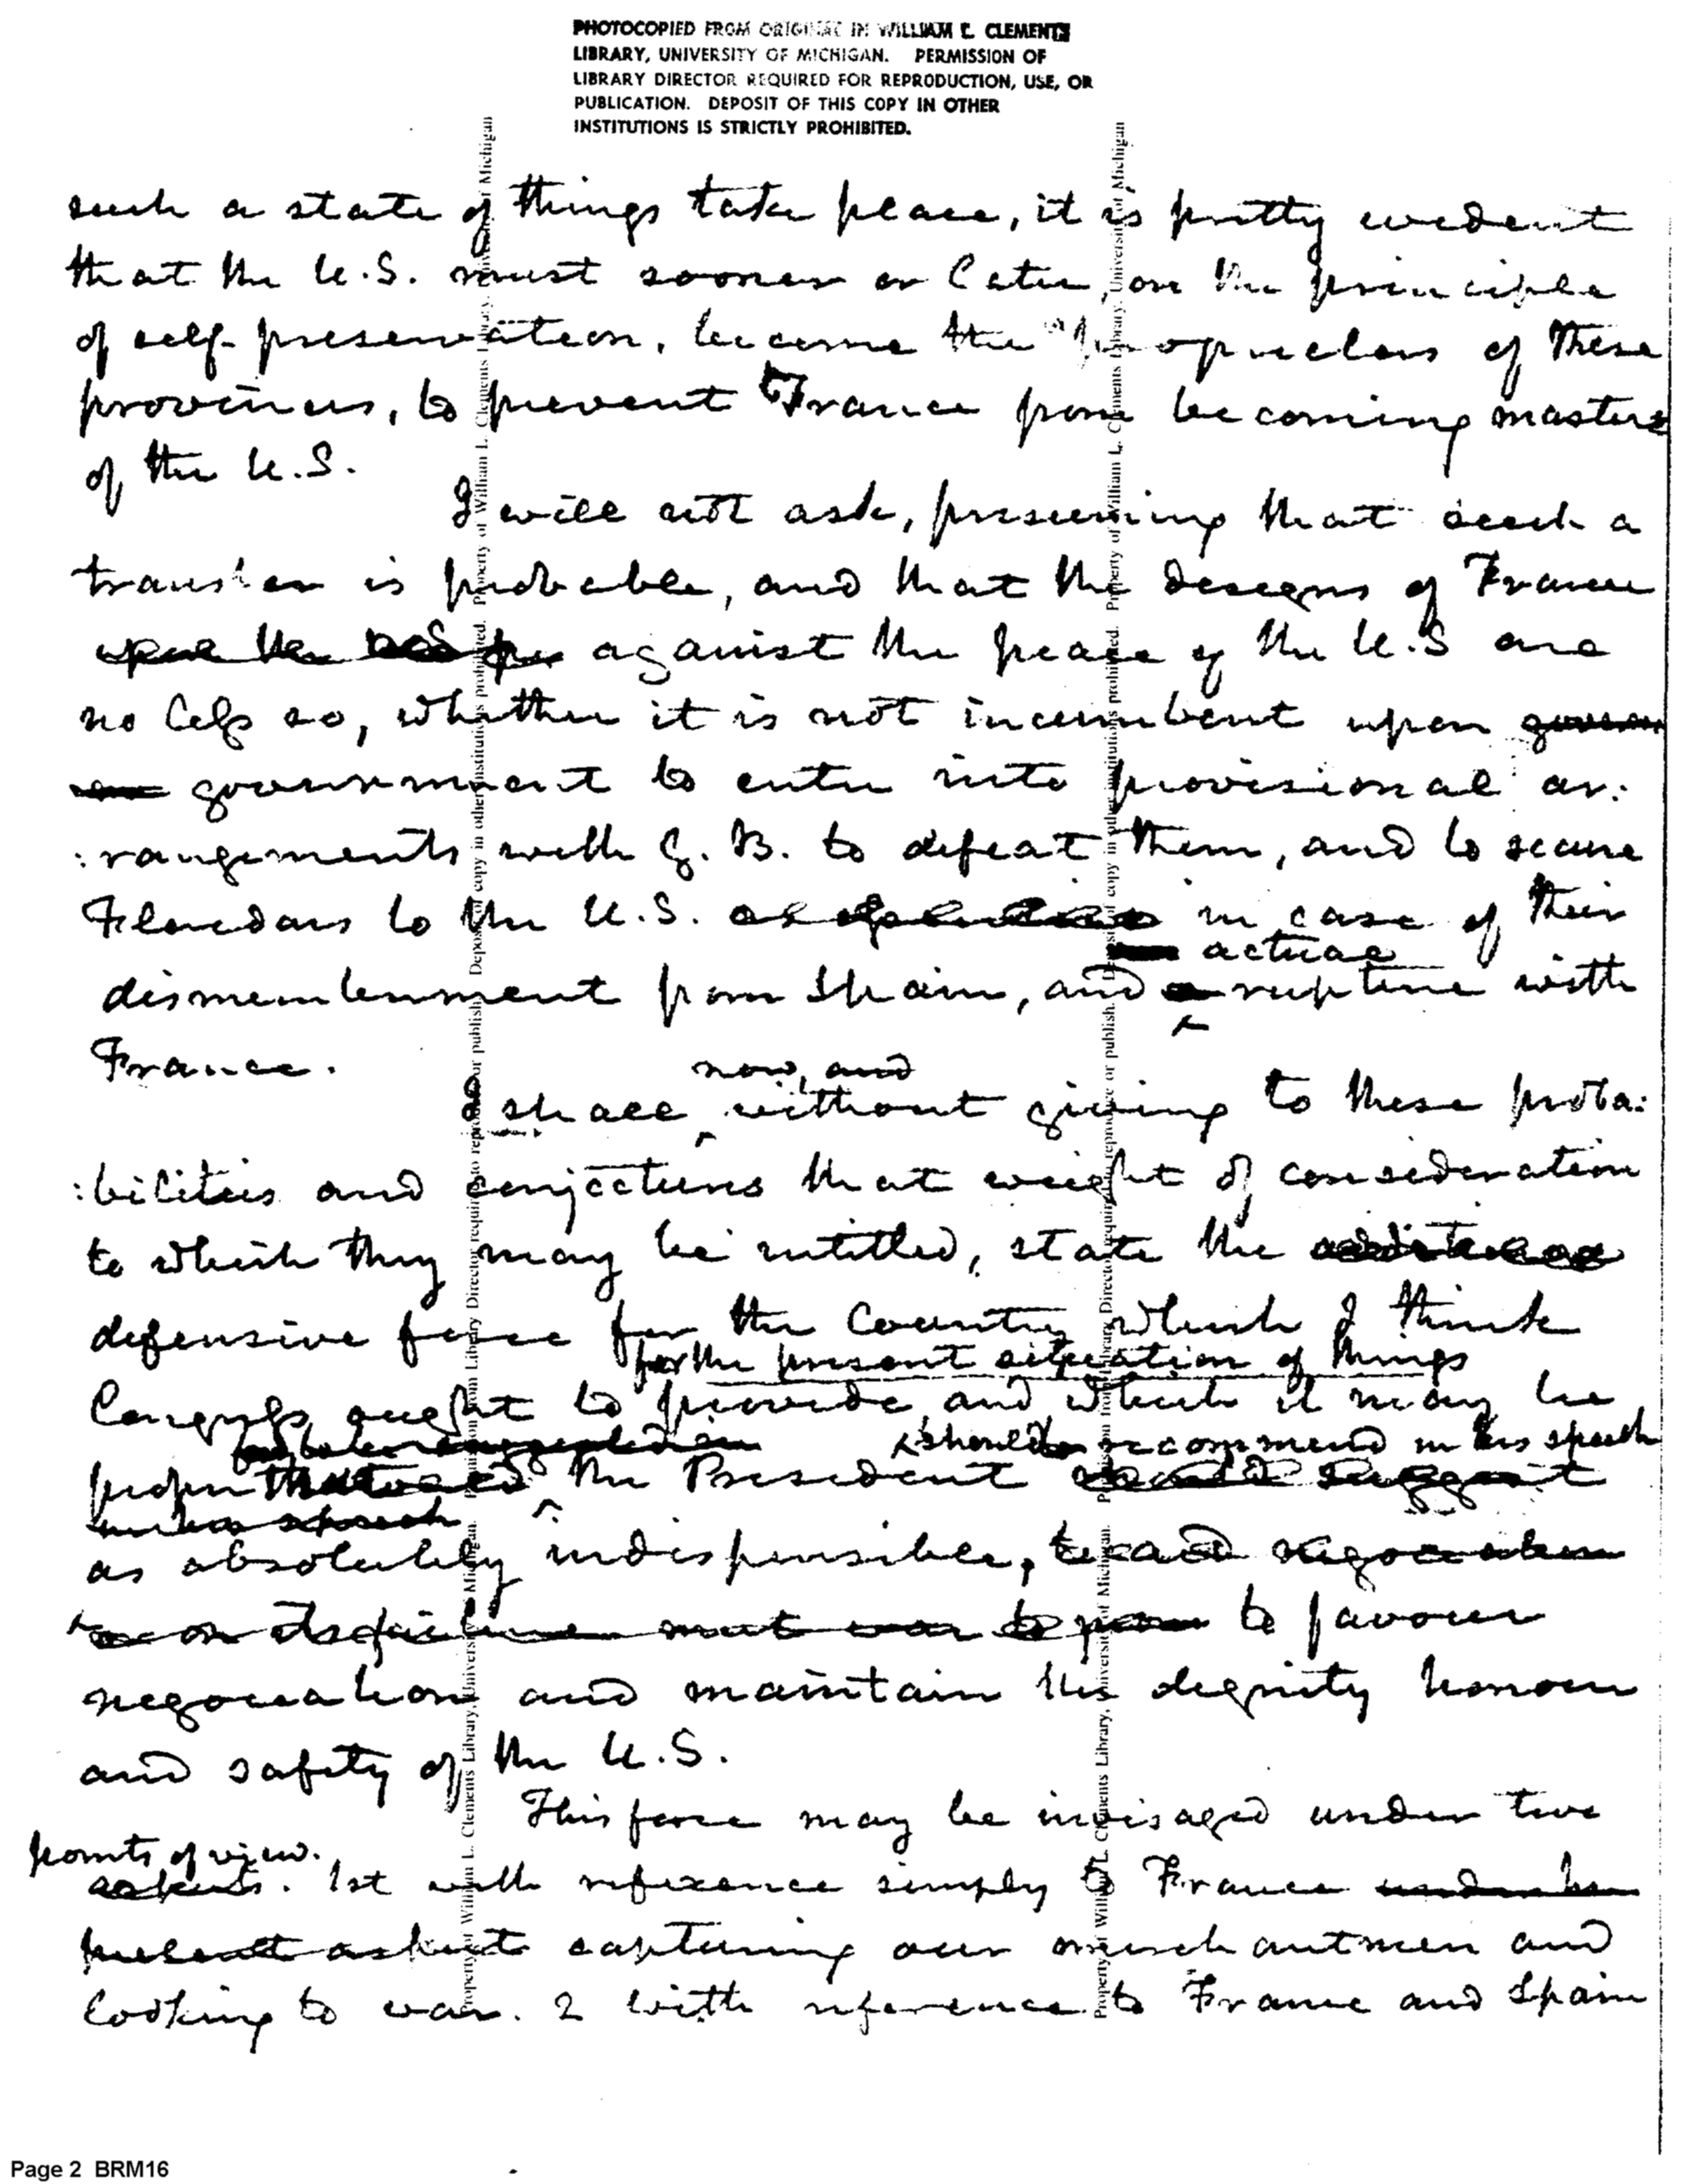 PHOTOCOPIED FROM ORIGINAL IN WILLIAM L. CLEMENTS
LIBRARY, UNIVERSITY OF MICHIGAN. PERMISSION OF
LIBRARY DIRECTOR REQUIRED FOR REPRODUCTION, USE, OR
PUBLICATION. DEPOSIT OF THIS COPY IN OTHER
INSTITUTIONS IS STRICTLY PROHIBITED.
such a state of things take place, it is pretty evident
that the U.S. must sooner or later, on the principle
of self-preservation, become the proprietors of these
provinces, to prevent France from becoming masters
of the U.S.
I will not ask, presuming that such a
transfer is probable, and that the designs of France
against the peace of the U.S are
no less so, whether it is not incumbent upon govern
government to enter into provisional ar:
:rangements with G. B. to defeat them, and to secure
Floridas to the U.S. in case of their
actual
dismemberment from Spain, and a rupture with
France.
now, and
I shall without giving to these proba:
:bilities and conjectures that weight of consideration
to which they may be intitled, state the
defensive force for the Country which I think
for the present situation of things
Congress ought to provide and which it may be
should recommend in his speech
proper the President should suggest
in his speech
as absolutely indispensible, to aid negociation
to favour
negociation and maintain the dignity honour
and safety of the U.S.
This force may be invisaged under two
points of view.
aspects. 1st with reference simply to France under her
present aspect capturing our merchantmen and
looking to war. 2 with reference to France and Spain
Property of William L. Clements Library, University of Michigan. Director required to reproduce or publish. Deposit of copy in other institutions prohibited.
Property of William L. Clements Library, University of Michigan. Director required to reproduce or publish. Deposit of copy in other institutions prohibited.
Page 2 BRM16